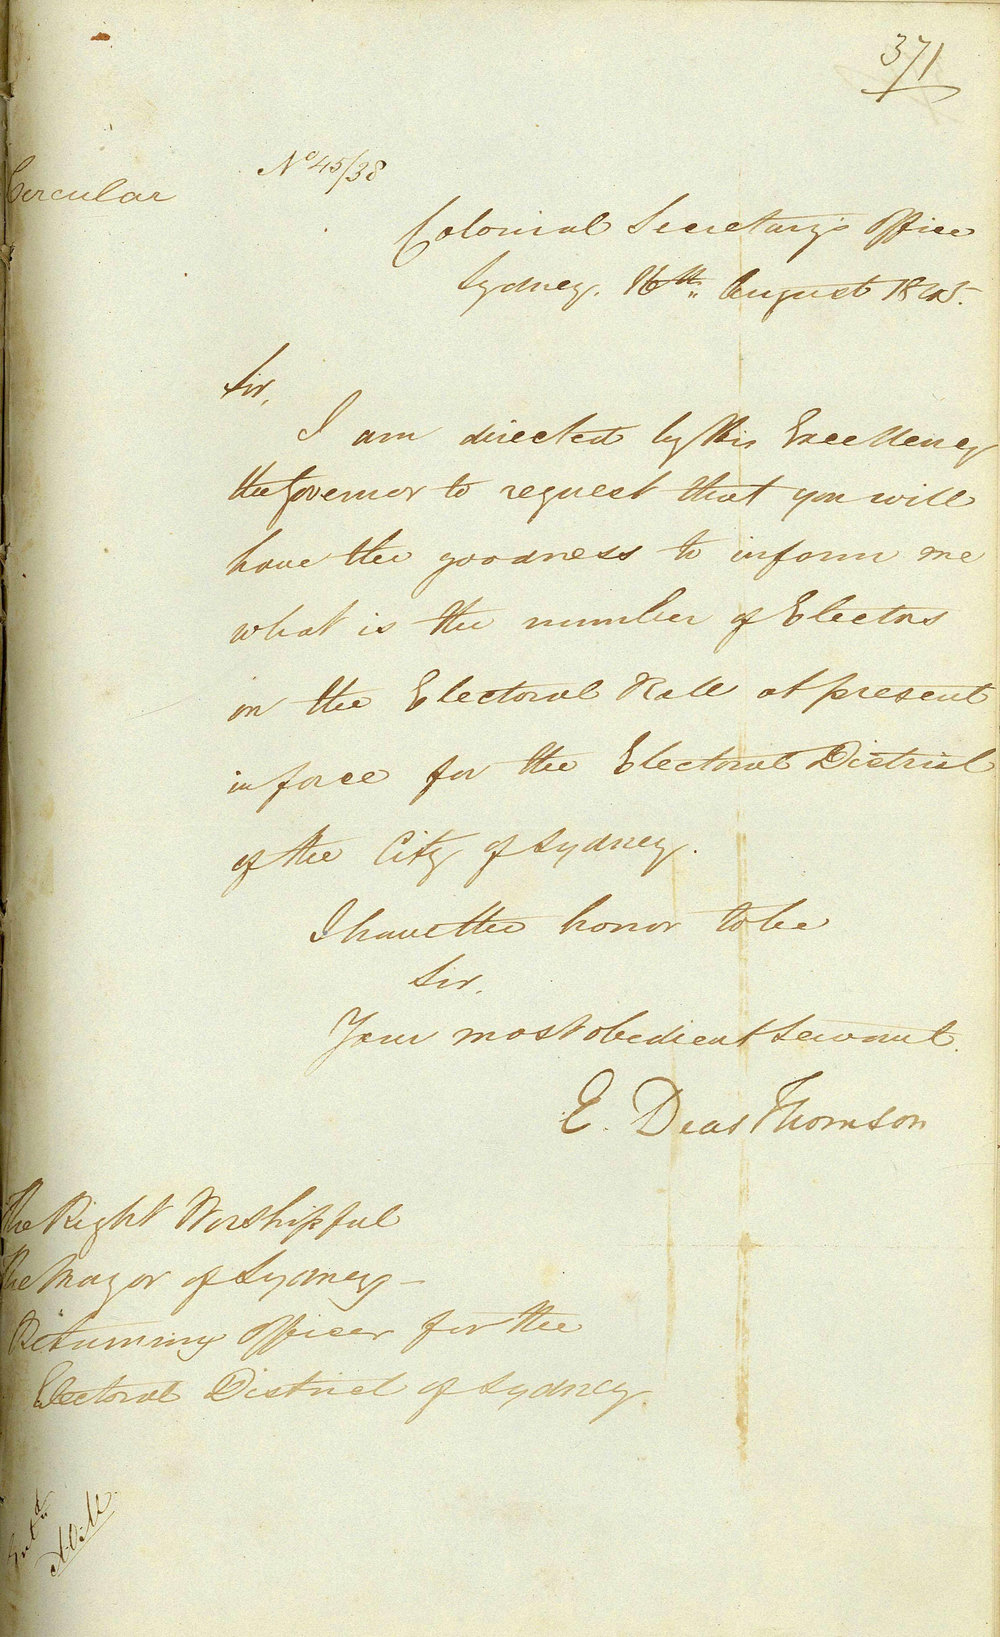 371
No 45/38
Circular
Colonial Secretary's Office
Sydney. 16th August 1845.
Sir,
I am directed by His Excellency
the Governor to request that you will
have the goodness to inform me
what is the number of Electors
on the Electoral Roll at present
in force for the Electoral District
of the City of Sydney.
I have the honor to be
Sir.
Your most obedient Servant.
E. Deas Thomson
The Right Worshipful
The Mayor of Sydney –
Returning Officer for the
Electoral District of Sydney.
Entd